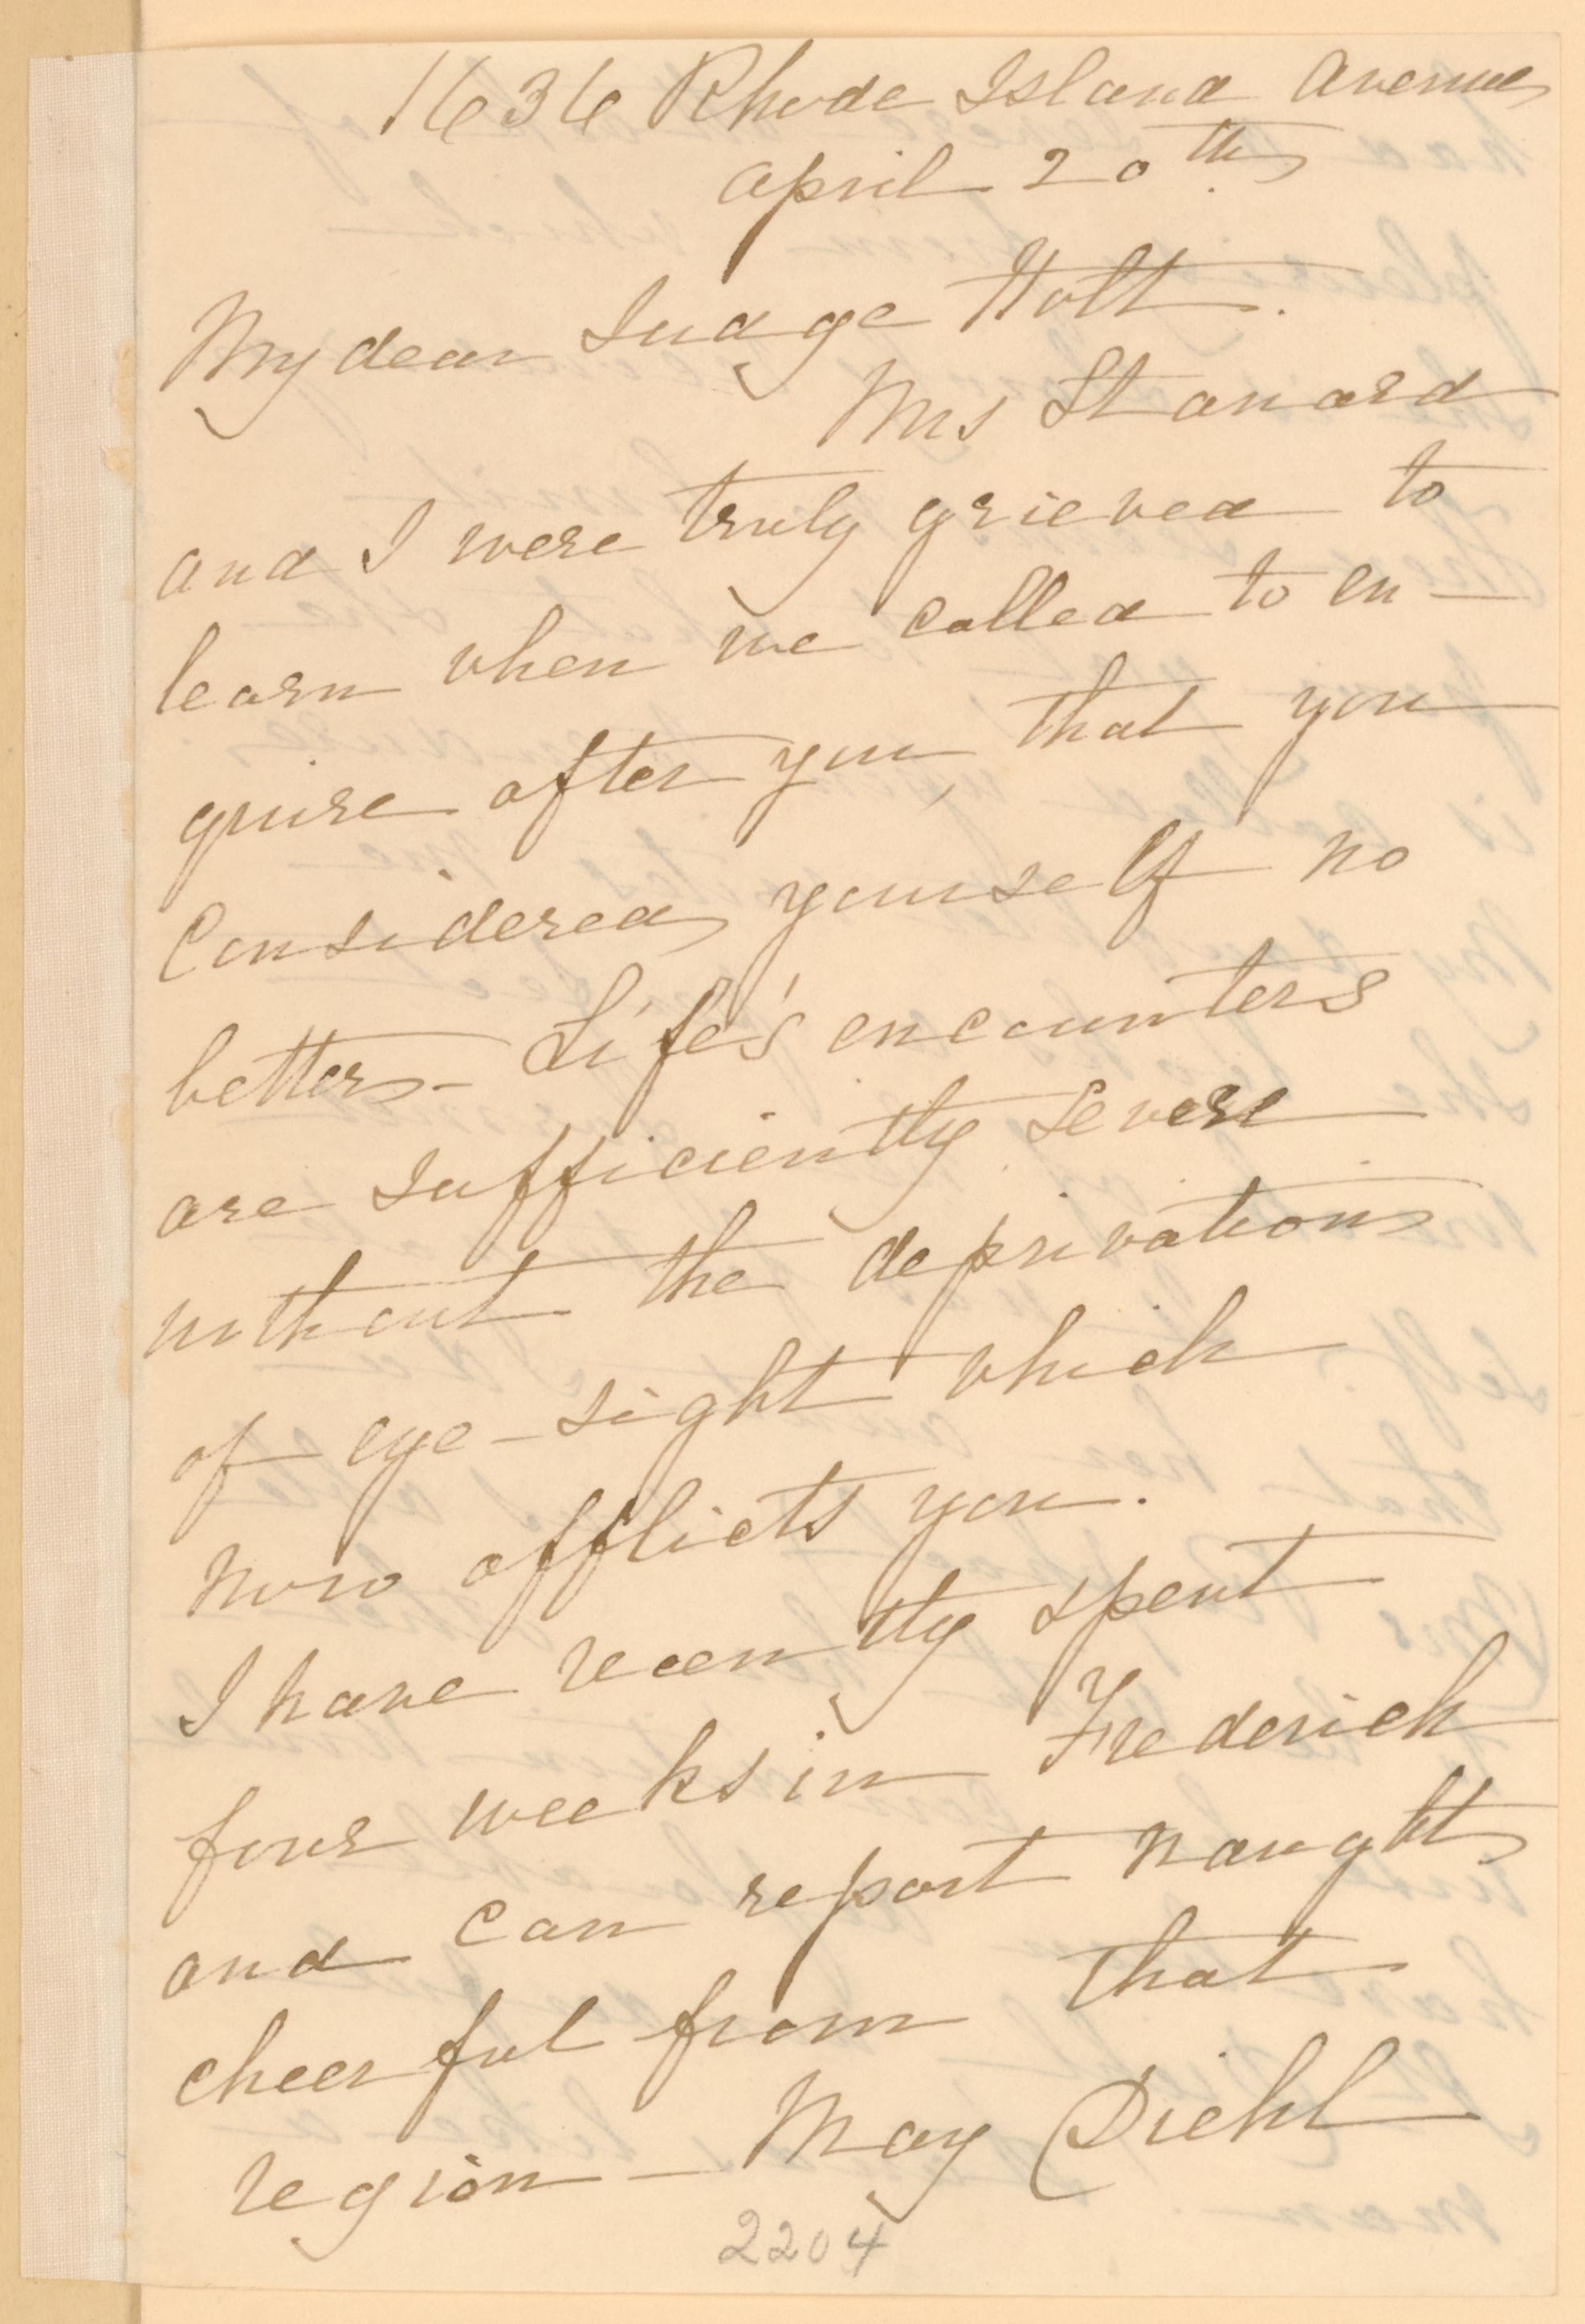 1636 Rhode Island Avenue
April 20th.
My dear Judge Holt.
Mrs Stanard
and I were truly grieved to
learn when we called to en-
quire after you, that you
Considered yourself no
better - Life's encounters
are sufficiently severe
without the deprivation
of eye-sight which
now afflicts you.
I have recently spent
four weeks in Frederick
and can report naught
cheerful from that
region - May Diehl
2204